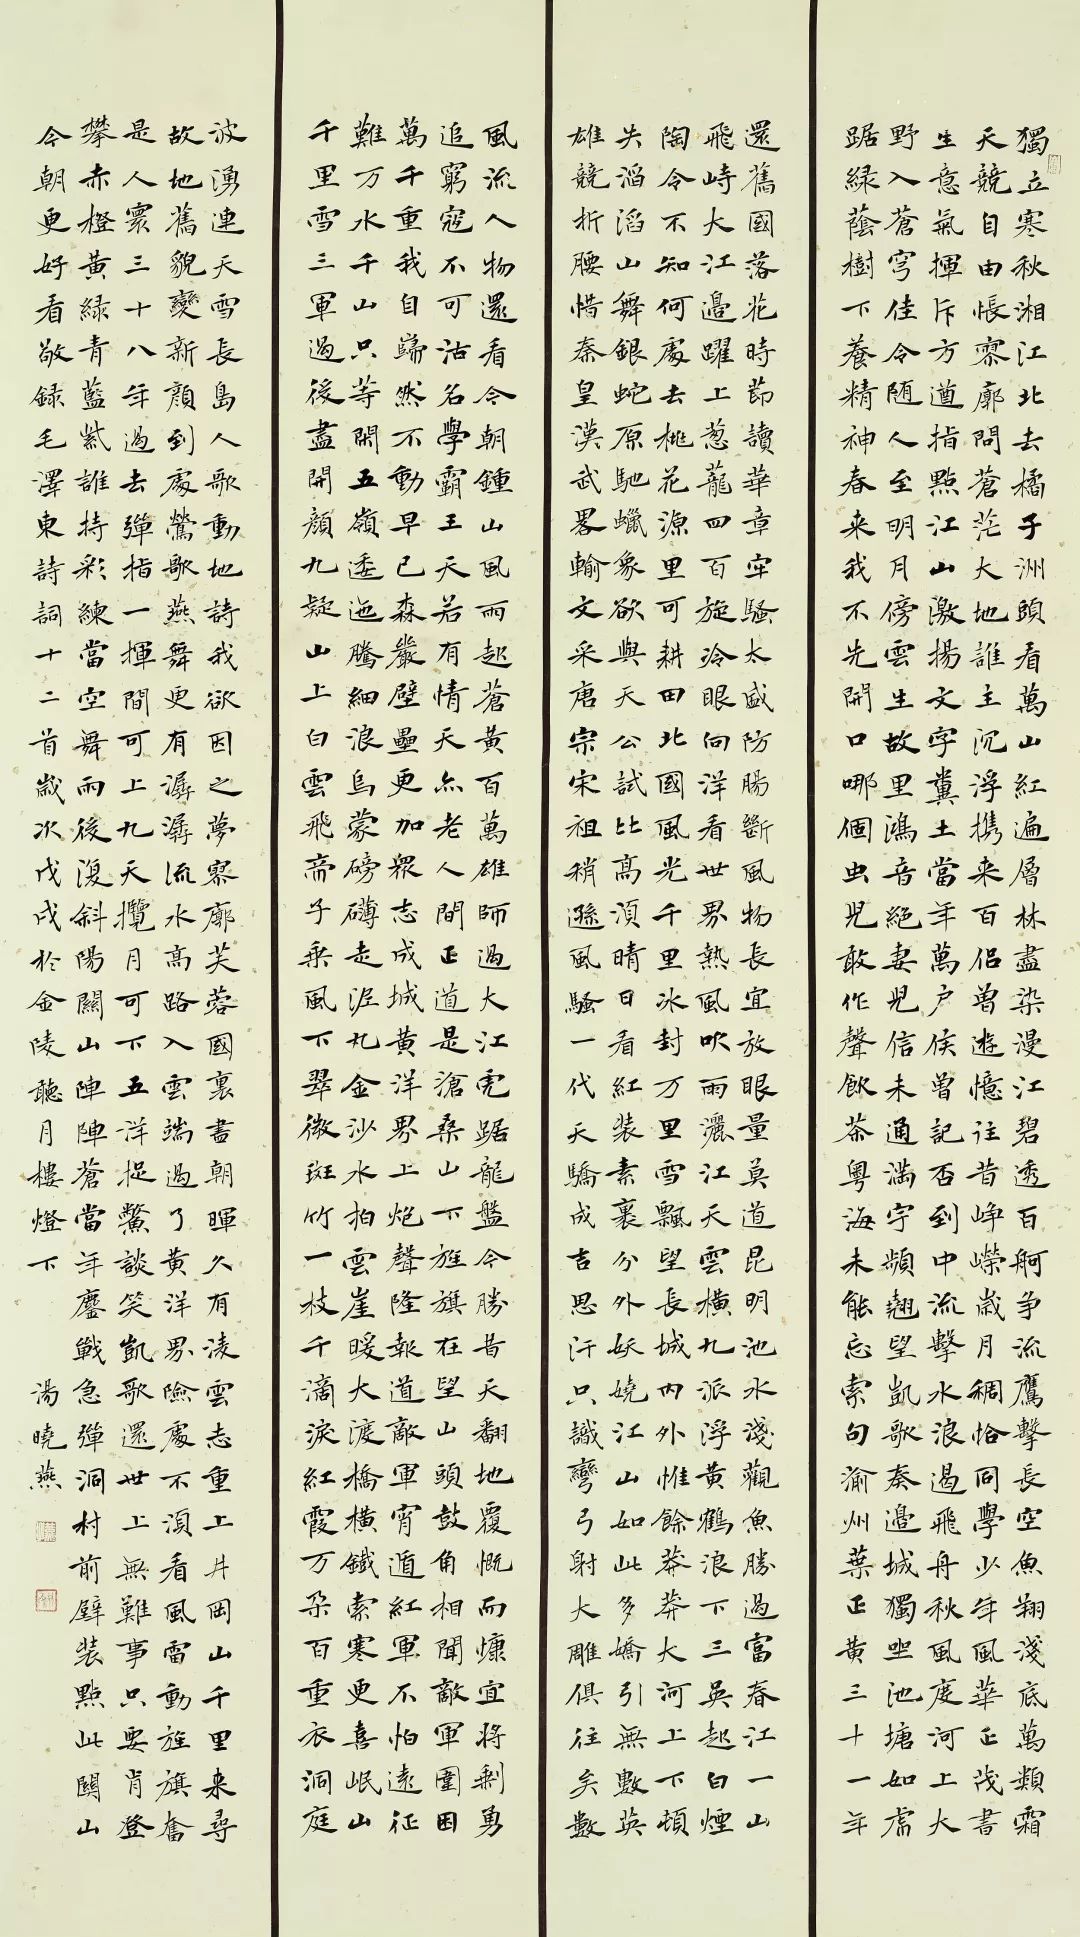 獨立寒秋湘江北去橘子洲頭看萬山紅遍層林盡染漫江碧透百舸争流鷹擊長空魚翔淺底萬類霜
天競自由悵寥廓問蒼茫大地誰主沉浮携来百侣曾遊憶往昔崢嶸歲月稠恰同學少年風華正茂書
生意氣揮斥方遒指點江山激揚文字糞土當年萬户侯曾記否到中流擊水浪遏飛舟秋風度河上大
野入蒼穹佳令随人至明月傍雲生故里鴻音絕妻兒信未通滿宇頻翹望凱歌奏邊城獨坐池塘如虎
踞綠蔭樹下養精神春来我不先開口哪個虫兒敢作聲飲茶粤海未能忘索句渝州葉正黄三十一年
還舊國落花時節讀華章牢騷太盛防腸斷風物長宜放眼量莫道昆明池水淺觀魚勝過富春江一山
飛峙大江邊躍上葱蘢四百旋冷眼向洋看世界熱風吹雨灑江天雲橫九派浮黄鶴浪下三吳起白煙
陶令不知何處去桃花源里可耕田北國風光千里冰封万里雪飄望長城内外惟餘莽莽大河上下頓
失滔滔山舞銀蛇原馳蠟象欲與天公試比高須晴日看紅装素裹分外妖嬈江山如此多嬌引無數英
雄競折腰惜秦皇漢武畧輸文采唐宗宋祖稍遜風騷一代天驕成吉思汗只識彎弓射大雕俱往矣數
風流人物還看今朝鍾山風雨起蒼黄百萬雄師過大江虎踞龍盤今勝昔天翻地覆慨而慷宜將剩勇
追窮寇不可沽名學霸王天若有情天亦老人間正道是滄桑山下旌旗在望山頭鼓角相聞敵軍圍困
萬千重我自巋然不動早已森嚴壁壘更加眾志成城黄洋界上炮聲隆報道敵軍宵遁紅軍不怕遠征
難万水千山只等閑五嶺逶迤騰細浪烏蒙磅礴走泥丸金沙水拍雲崖暖大渡橋橫鐵索寒更喜岷山
千里雪三軍過後盡開顏九疑山上白雲飛帝子乘風下翠微斑竹一枝千滴淚紅霞万朵百重衣洞庭
波湧連天雪長島人歌動地詩我欲因之夢寥廓芙蓉國裏盡朝暉久有淩雲志重上井岡山千里来尋
故地舊貌變新顏到處鶯歌燕舞更有潺潺流水高路入雲端過了黄洋界險處不須看風雷動旌旗奮
是人寰三十八年過去彈指一揮間可上九天攬月可下五洋捉鱉談笑凱歌還世上無難事只要肯登
攀赤橙黄綠青藍紫誰持彩練當空舞雨後復斜陽關山陣陣蒼當年鏖戰急彈洞村前壁装點此關山
今朝更好看敬録毛澤東詩詞十二首歲次戊戌於金陵聽月樓燈下 湯曉燕